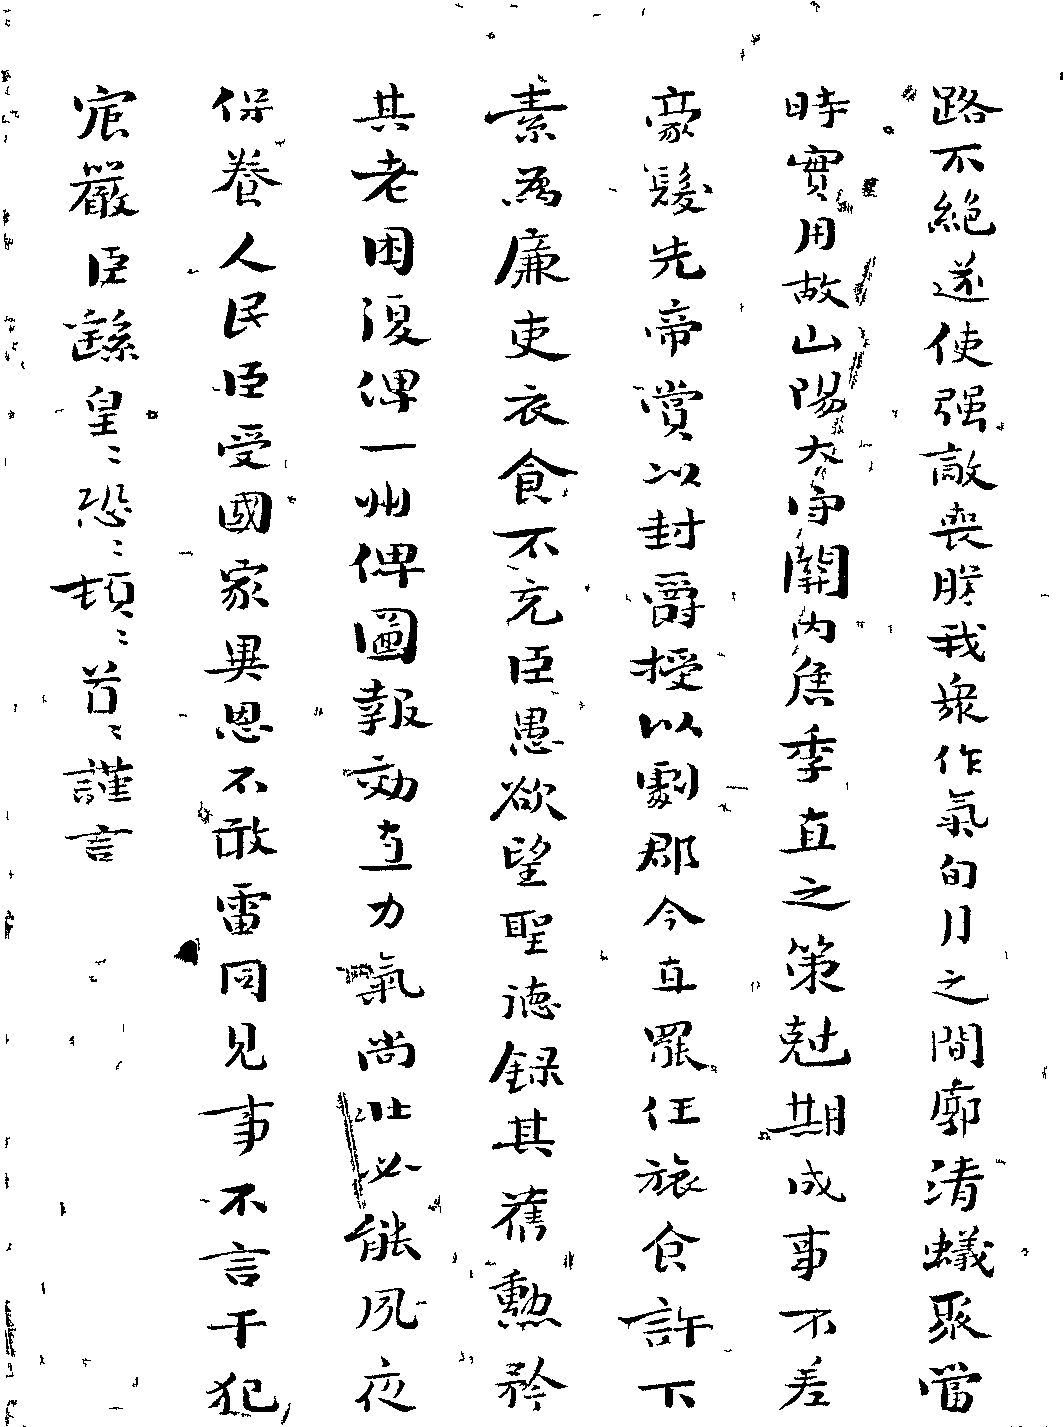 路不絕遂使强敵喪膽我衆作氣旬月之間廓清蟻聚當
時實用故山陽太守關內侯季直之策尅期成事不差
豪髮先帝賞以封爵授以劇郡今直罷任旅食許下
素為廉吏衣食不充臣愚欲望聖德錄其舊勳矜
其老困復俾一州俾圖報効直力氣尚壯必能夙夜
保養人民臣受國家異恩不敢雷同見事不言干犯
宸嚴臣繇皇〻恐〻頓〻首〻謹言